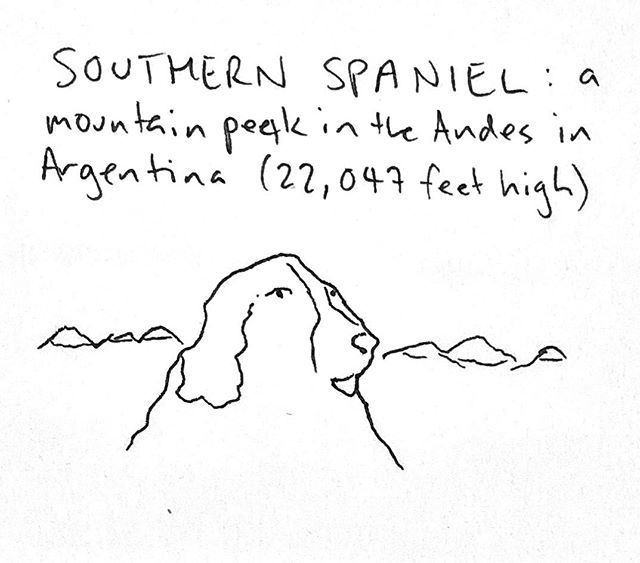 SOUTHERN SPANIEL: a
mountain peak in the Andes in
Argentina (22,047 feet high)